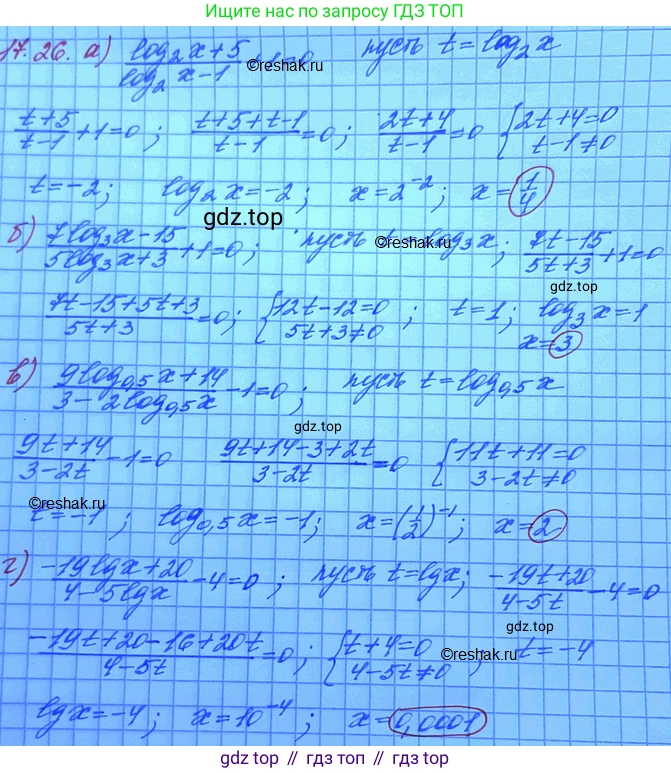 Ищите нас по запросу ГДЗ ТОП
17.26. а) (log₂x+5)/(log₂x-1) +1=0 пусть t=log₂x
©reshak.ru
(t+5)/(t-1)+1=0; (t+5+t-1)/(t-1)=0; (2t+4)/(t-1)=0 {2t+4=0 t-1≠0
t=-2; log₂x=-2; x=2⁻²; x=1/4
gdz.top
б) (7log₃x-15)/(5log₃x+3)+1=0; пусть t=log₃x; (7t-15)/(5t+3)+1=0
©reshak.ru
gdz.top
(7t-15+5t+3)/(5t+3)=0; {12t-12=0 5t+3≠0; t=1; log₃x=1
x=3
в) (9log₀,₅x+14)/(3-2log₀,₅x)-1=0; пусть t=log₀,₅x
gdz.top
(9t+14)/(3-2t)-1=0 (9t+14-3+2t)/(3-2t)=0 {11t+11=0 3-2t≠0
©reshak.ru
t=-1; log₀,₅x=-1; x=(1/2)⁻¹; x=2
г) (-19lgx+20)/(4-5lgx)-4=0; пусть t=lgx; (-19t+20)/(4-5t)-4=0
gdz.top
(-19t+20-16+20t)/(4-5t)=0; {t+4=0 4-5t≠0; t=-4
©reshak.ru
lgx=-4; x=10⁻⁴; x=0,0001
gdz.top // гдз топ // gdz.top // гдз топ